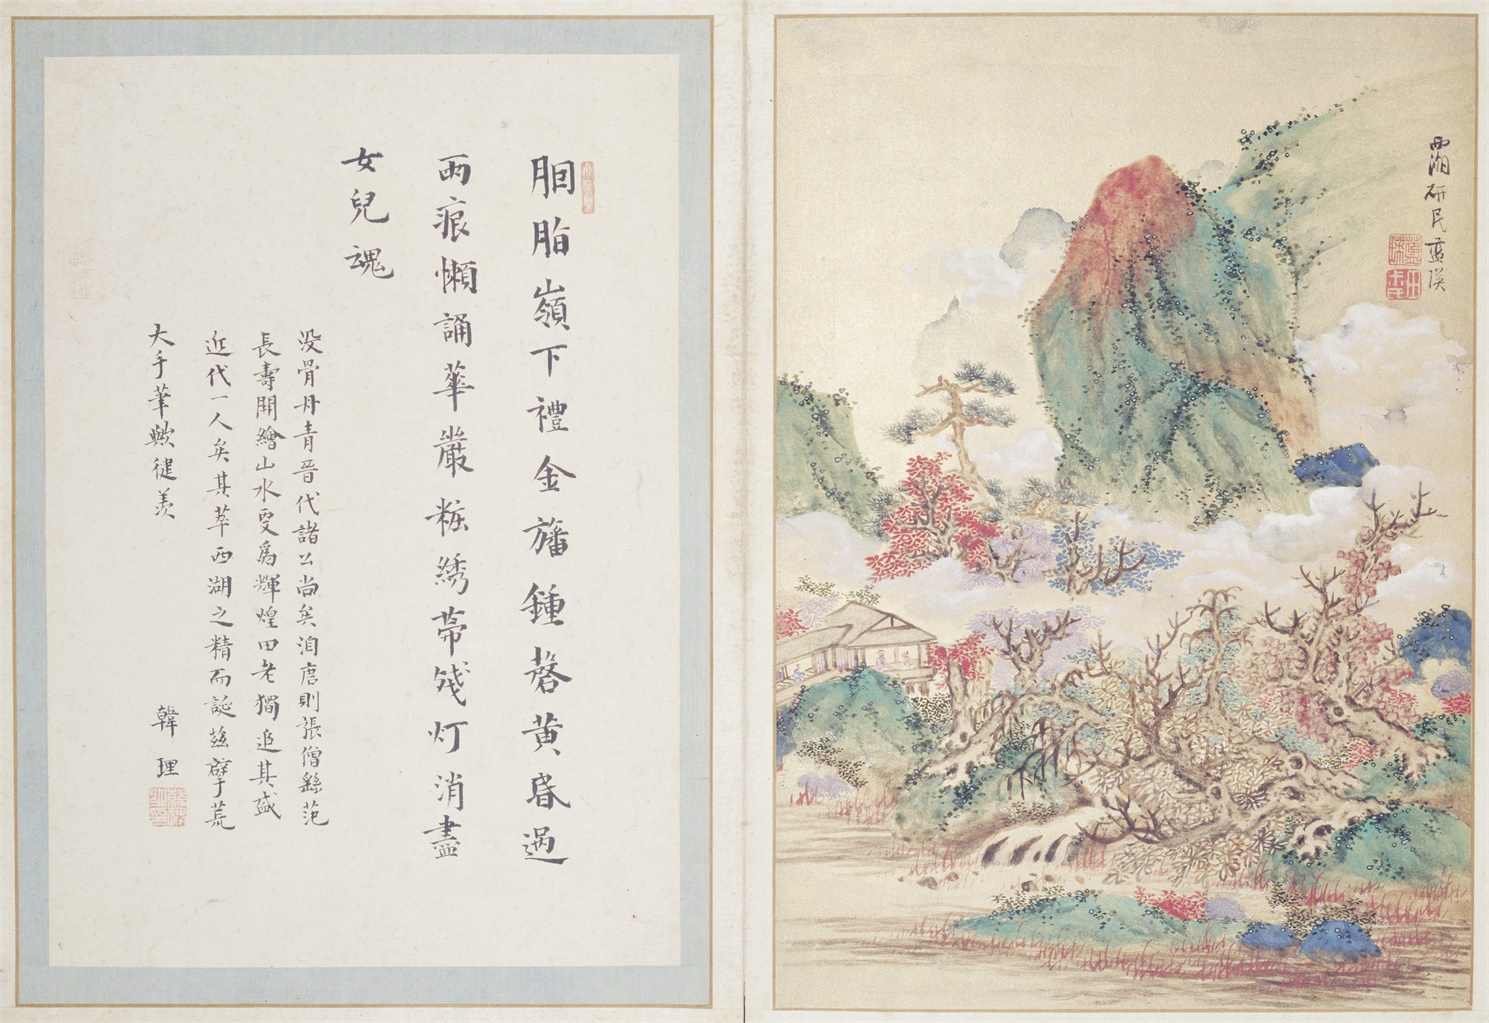 西湖研民藍瑛
胭脂嶺下禮金旛鍾磬黃昏過
雨痕懶誦華嚴粧綉帶殘灯消盡
女兒魂
没骨丹青晉代諸公尚矣洎唐則張僧繇范
長壽開繪山水更爲輝煌田老獨追其盛
近代一人矣其萃西湖之精而誕茲擘荒
大手筆歟健羨
韓理